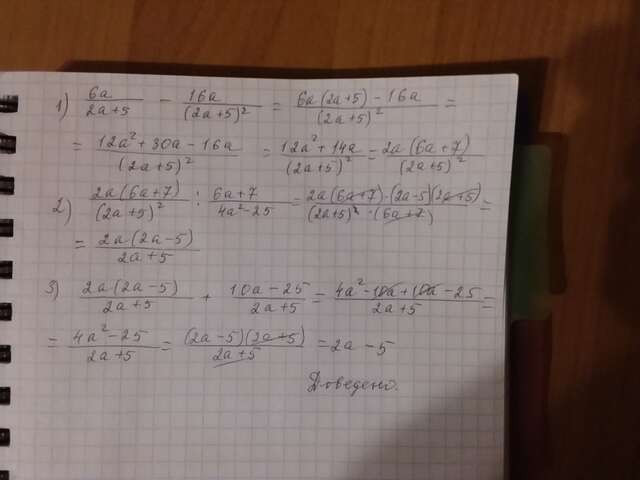 1) 6a/(2a+5) - 16a/(2a+5)² = (6a(2a+5) - 16a)/(2a+5)² =
= (12a² + 30a - 16a)/(2a+5)² = (12a² + 14a)/(2a+5)² = 2a(6a+7)/(2a+5)²
2) 2a(6a+7)/(2a+5)² : (6a+7)/(4a² - 25) = (2a(6a+7)·(2a-5)(2a+5))/((2a+5)²·(6a+7)) =
= 2a(2a-5)/(2a+5)
3) 2a(2a-5)/(2a+5) + (10a - 25)/(2a+5) = (4a² - 10a + 10a - 25)/(2a+5) =
= (4a² - 25)/(2a+5) = (2a-5)(2a+5)/(2a+5) = 2a - 5
Доведено.